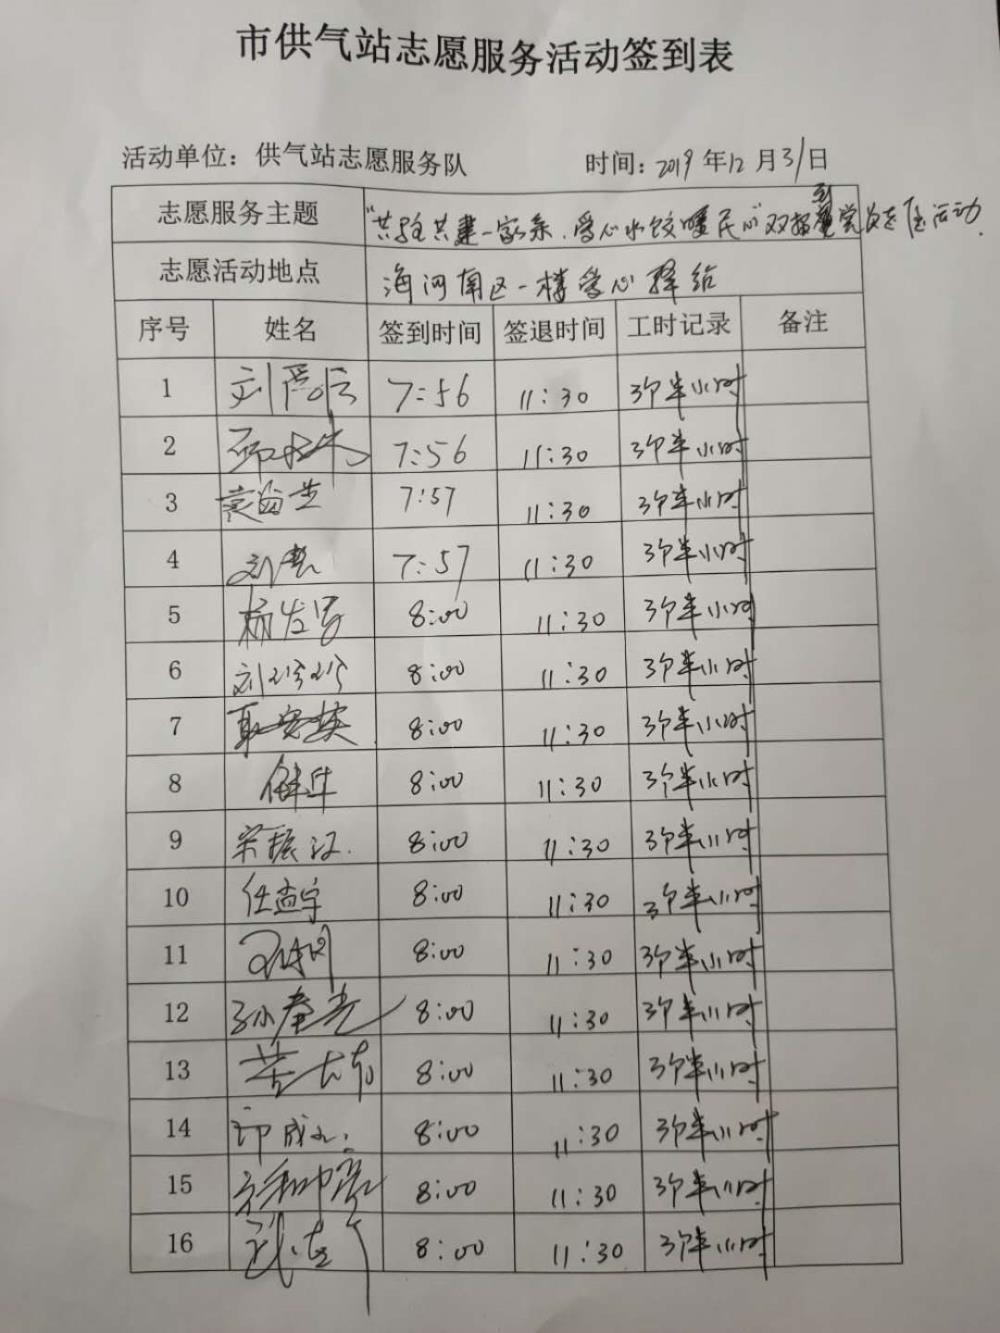 市供气站志愿服务活动签到表
活动单位：供气站志愿服务队 时间：2019年12月31日
志愿服务主题 "共驻共建一家亲、爱心水饺暖民心"双报到党员志愿活动
志愿活动地点 海河南区一楼爱心驿站
序号 姓名 签到时间 签退时间 工时记录 备注
1 7:56 11:30 3个半小时
2 7:56 11:30 3个半小时
3 7:57 11:30 3个半小时
4 刘 7:57 11:30 3个半小时
5 杨 8:00 11:30 3个半小时
6 刘玲玲 8:00 11:30 3个半小时
7 8:00 11:30 3个半小时
8 8:00 11:30 3个半小时
9 宋振江 8:00 11:30 3个半小时
10 任孟宇 8:00 11:30 3个半小时
11 8:00 11:30 3个半小时
12 孙春光 8:00 11:30 3个半小时
13 8:00 11:30 3个半小时
14 8:00 11:30 3个半小时
15 8:00 11:30 3个半小时
16 8:00 11:30 3个半小时